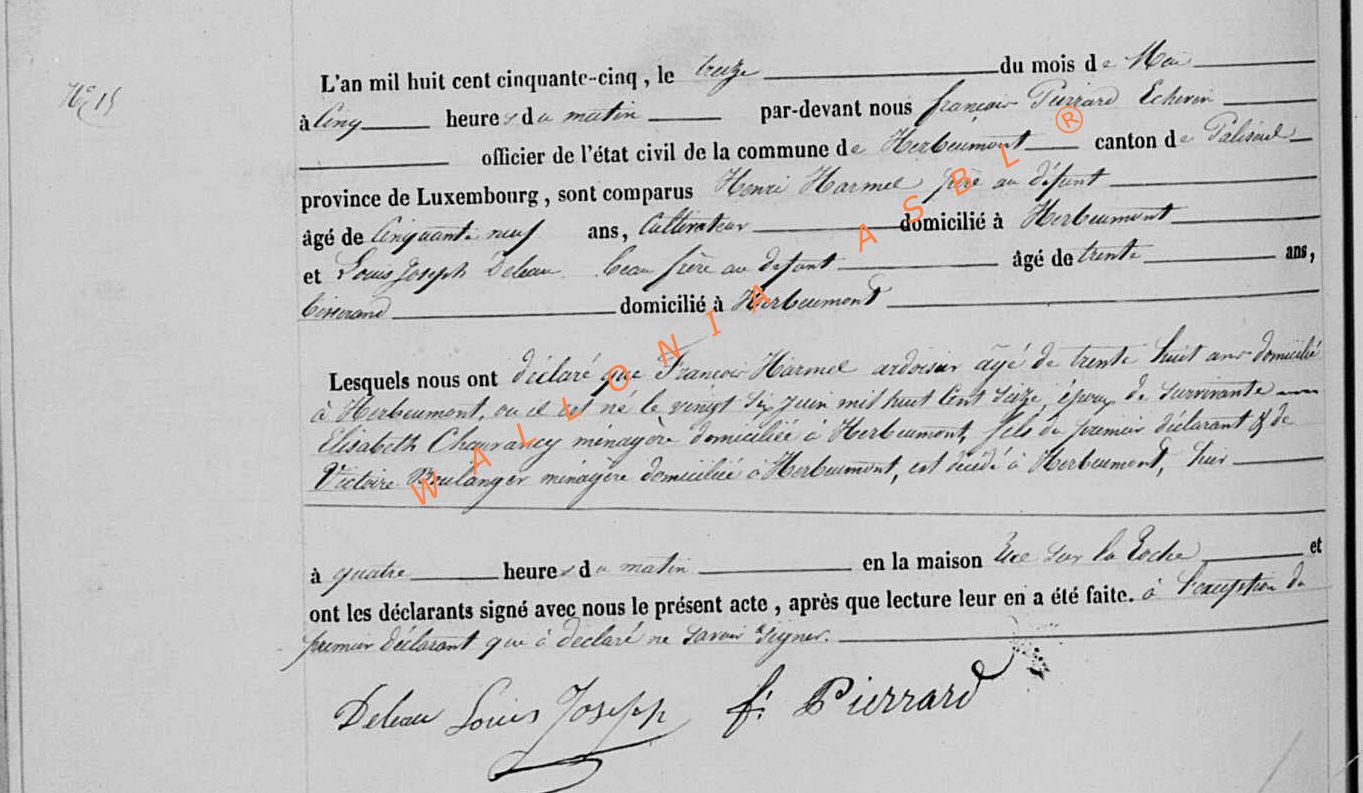 No 15
L'an mil huit cent cinquante-cinq, le treize du mois de Mai
à Cinq heures du matin par-devant nous françois Pierrard Echevin
officier de l'état civil de la commune de Herbeumont canton de Paliseul
province de Luxembourg, sont comparus Henri Harmel père au défunt
âgé de Cinquante neuf ans, Cultivateur domicilié à Herbeumont
et Louis Joseph Deleau beau frère au défunt âgé de trente ans,
tisserand domicilié à Herbeumont
Lesquels nous ont déclaré que François Harmel ardoisier agé de trente huit ans domicilié
à Herbeumont, où il est né le vingt six juin mil huit Cent seize époux de survivante
Elisabeth Chauvancy ménagère domiciliée à Herbeumont, fils du premier déclarant & de
Victoire Boulanger ménagère domiciliée à Herbeumont, est décédé à Herbeumont, hier
à quatre heures du matin en la maison sur la Roche et
ont les déclarants signé avec nous le présent acte, après que lecture leur en a été faite. à l'exception du
premier déclarant qui à déclaré ne savoir signer.
Deleau Louis Joseph f: Pierrard
WALLONIA ASBL ®